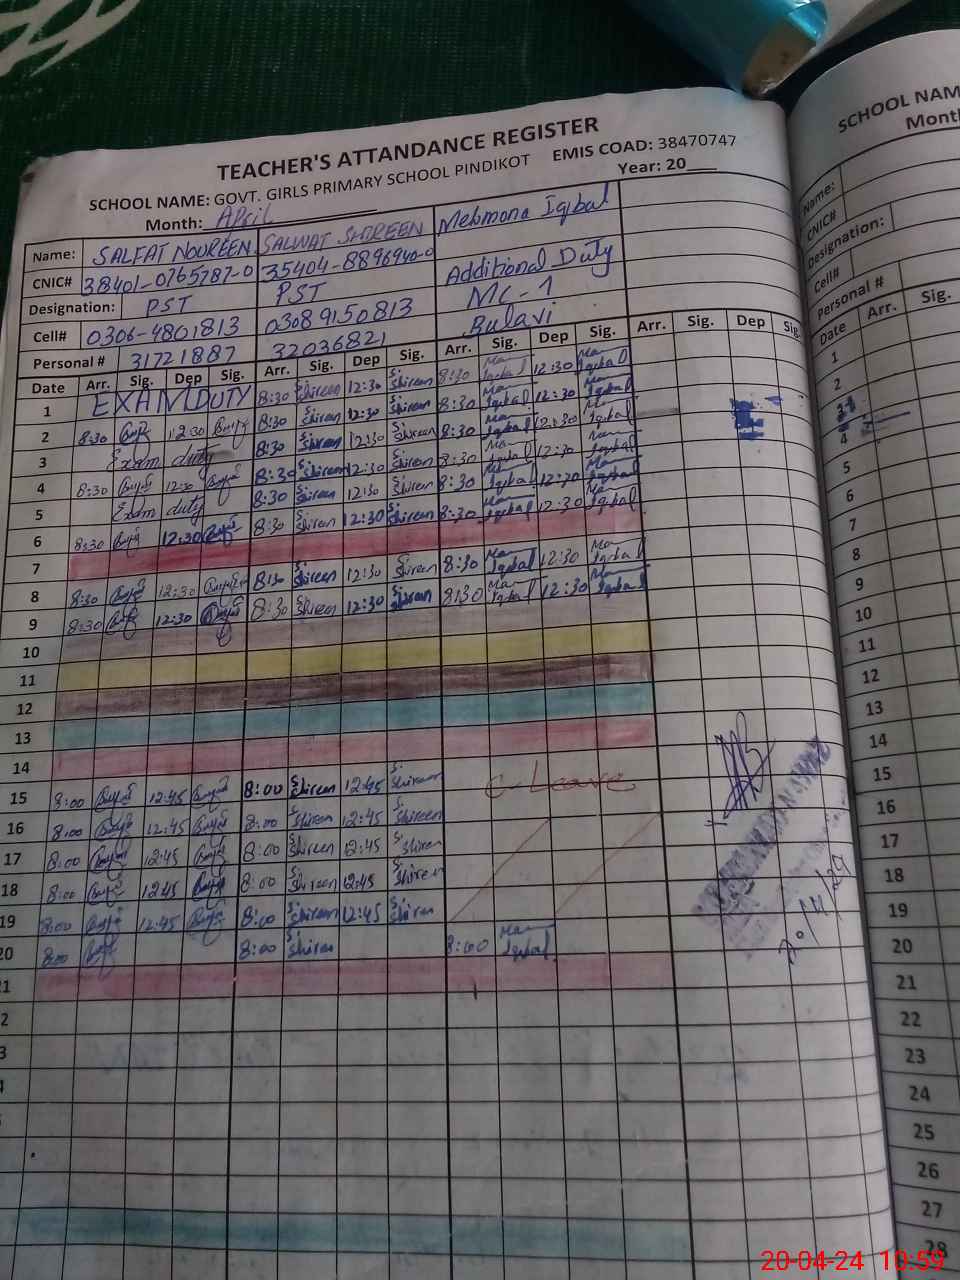 TEACHER'S ATTANDANCE REGISTER
SCHOOL NAME: GOVT. GIRLS PRIMARY SCHOOL PINDIKOT EMIS COAD: 38470747
Month: April Year: 20___
Name: SALFAT NOUREEN SALWAT SHIREEN Memona Iqbal
CNIC# 38401-0765787-0 35404-8896940-0 Additional Duty
Designation: PST PST MC-1
Cell# 0306-4801813 03089150813 Bulavi
Personal # 31721887 32036821
Date Arr. Sig. Dep Sig. Arr. Sig. Dep Sig. Arr. Sig. Dep Sig. Arr. Sig. Dep Sig.
1 EXAM DUTY 8:30 S. Shireen 12:30 S. Shireen 8:30 Iqbal 12:30 Iqbal
2 8:30 12:30 8:30 Shireen 12:30 Shireen 8:30 Iqbal 12:30 Iqbal
3 Exam duty 8:30 Shireen 12:30 Shireen 8:30 Iqbal 12:30 Iqbal
4 8:30 12:30 8:30 Shireen 12:30 Shireen 8:30 Iqbal 12:30 Iqbal
5 Exam duty 8:30 Shireen 12:30 Shireen 8:30 Iqbal 12:30 Iqbal
6 8:30 12:30 8:30 Shireen 12:30 Shireen 8:30 Iqbal 12:30 Iqbal
7
8 8:30 12:30 8:30 Shireen 12:30 Shireen 8:30 Iqbal 12:30 Iqbal
9 8:30 12:30 8:30 Shireen 12:30 Shireen 8:30 Iqbal 12:30 Iqbal
10
11
12
13
14
15 8:00 12:45 8:00 Shireen 12:45 Shireen C-Leave
16 8:00 12:45 8:00 Shireen 12:45 Shireen
17 8:00 12:45 8:00 Shireen 12:45 Shireen
18 8:00 12:45 8:00 Shireen 12:45 Shireen
19 8:00 12:45 8:00 Shireen 12:45 Shireen
20 8:00 8:00 Shireen 8:00 Iqbal
21
20/4/24
SCHOOL NAM
Month
Name:
CNIC#
Designation:
Cell#
Personal #
Date Arr. Sig.
1
2
4
5
6
7
8
9
10
11
12
13
14
15
16
17
18
19
20
21
22
23
24
25
26
27
28
20-04-24 10:59